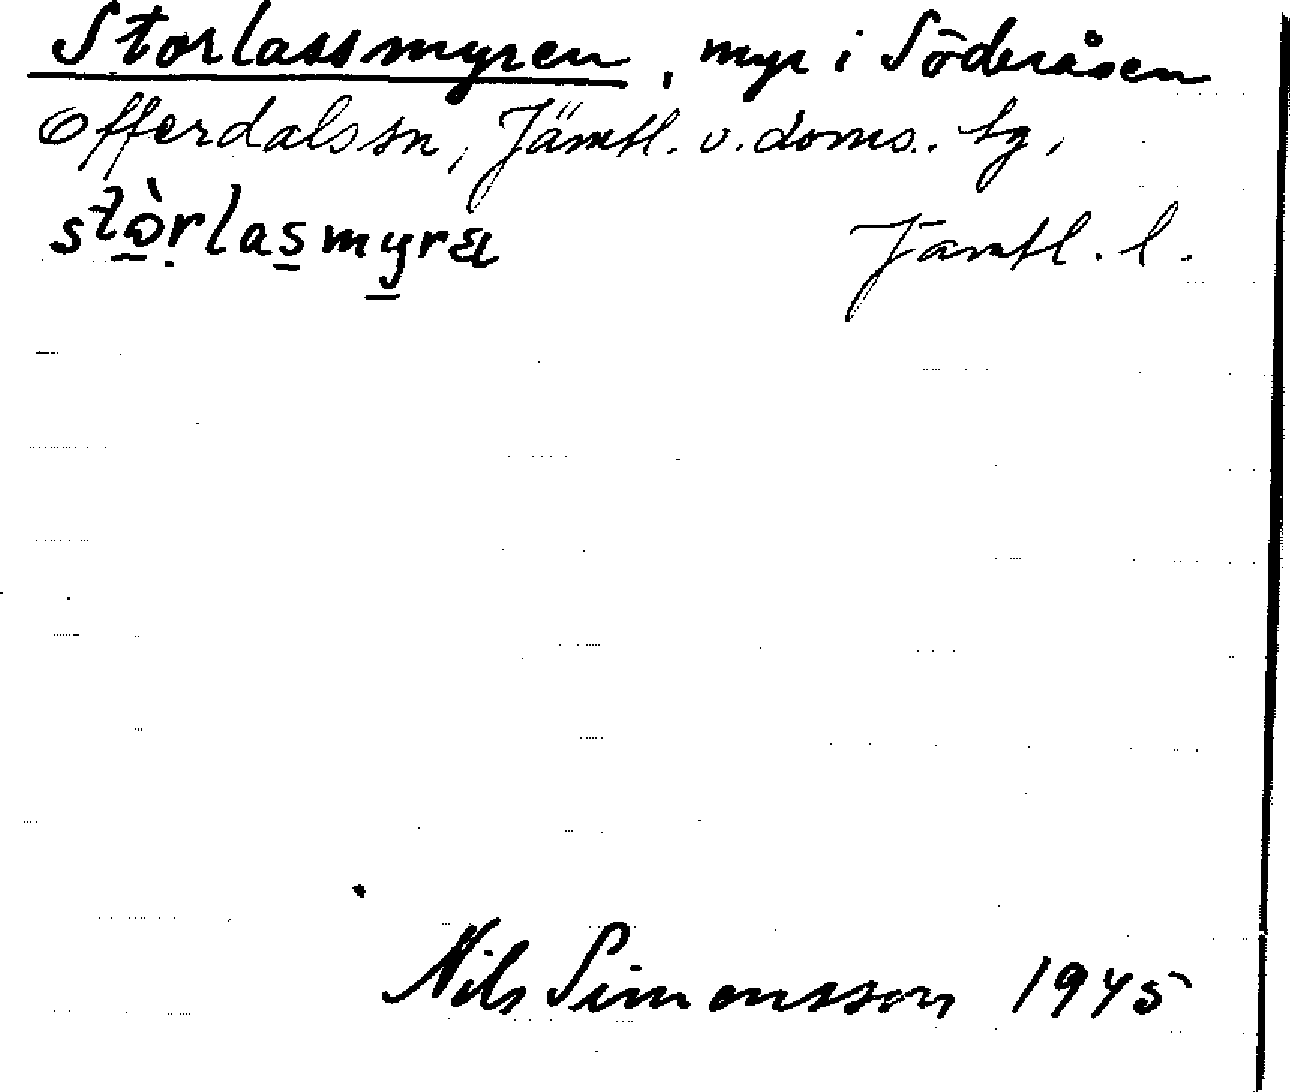 Storlassmyren, myr i Söderåsen
Offerdals sn, Jämtl. v. doms. tg,
Jämtl. l.
Nils Simonsson 1945